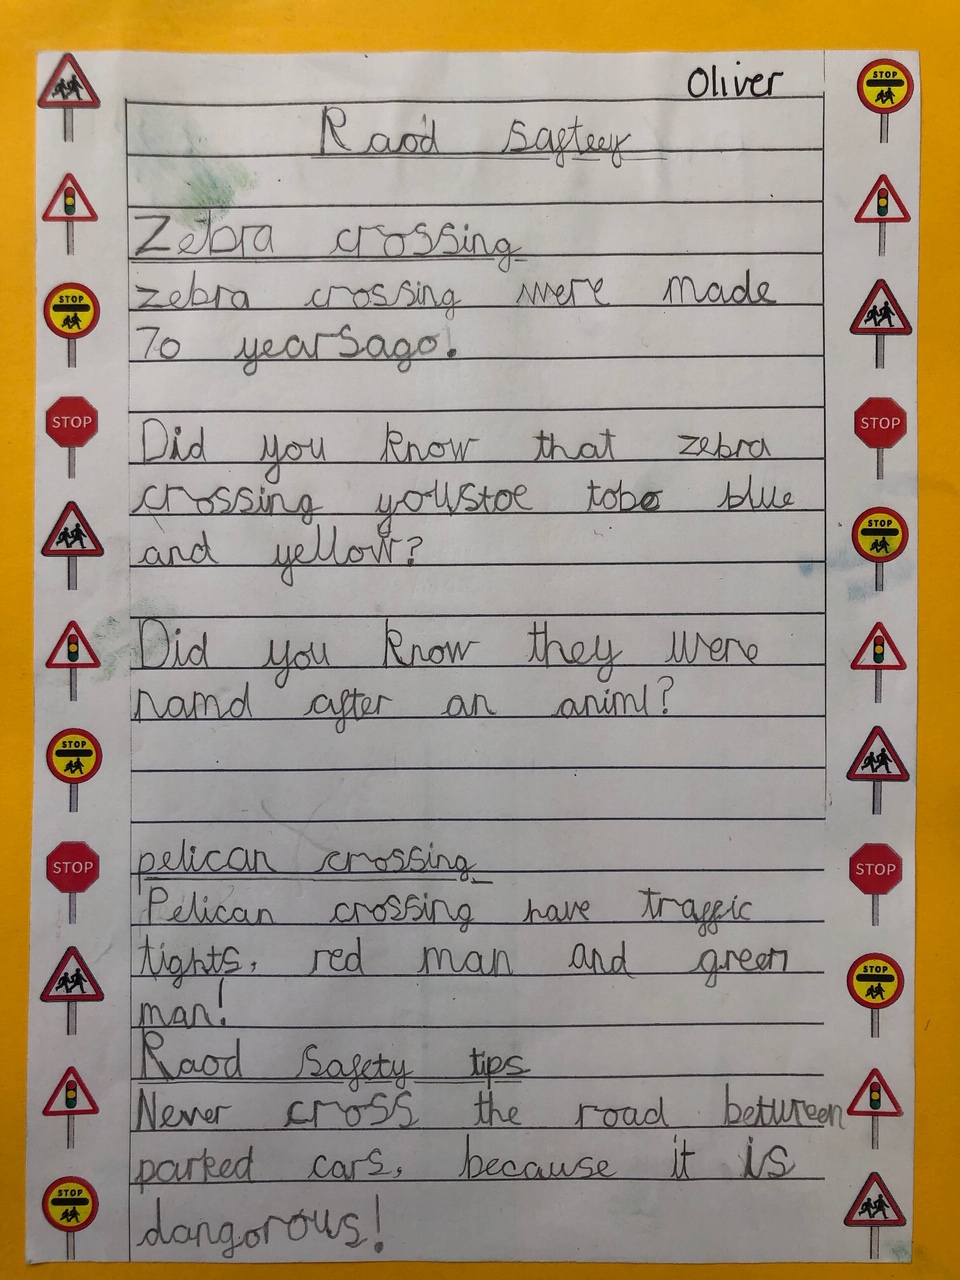 Oliver
Raod Safteey
Zebra crossing
zebra crossing were made
70 yearsago!
Did you know that zebra
crossing youstoe tobe blue
and yellow?
Did you know they were
namd after an animl?
pelican crossing
Pelican crossing have traffic
tights, red man and green
man!
Raod Safety tips
Never cross the road between
parked cars, because it is
dangorous!
STOP
STOP
STOP
STOP
STOP
STOP
STOP
STOP
STOP
STOP